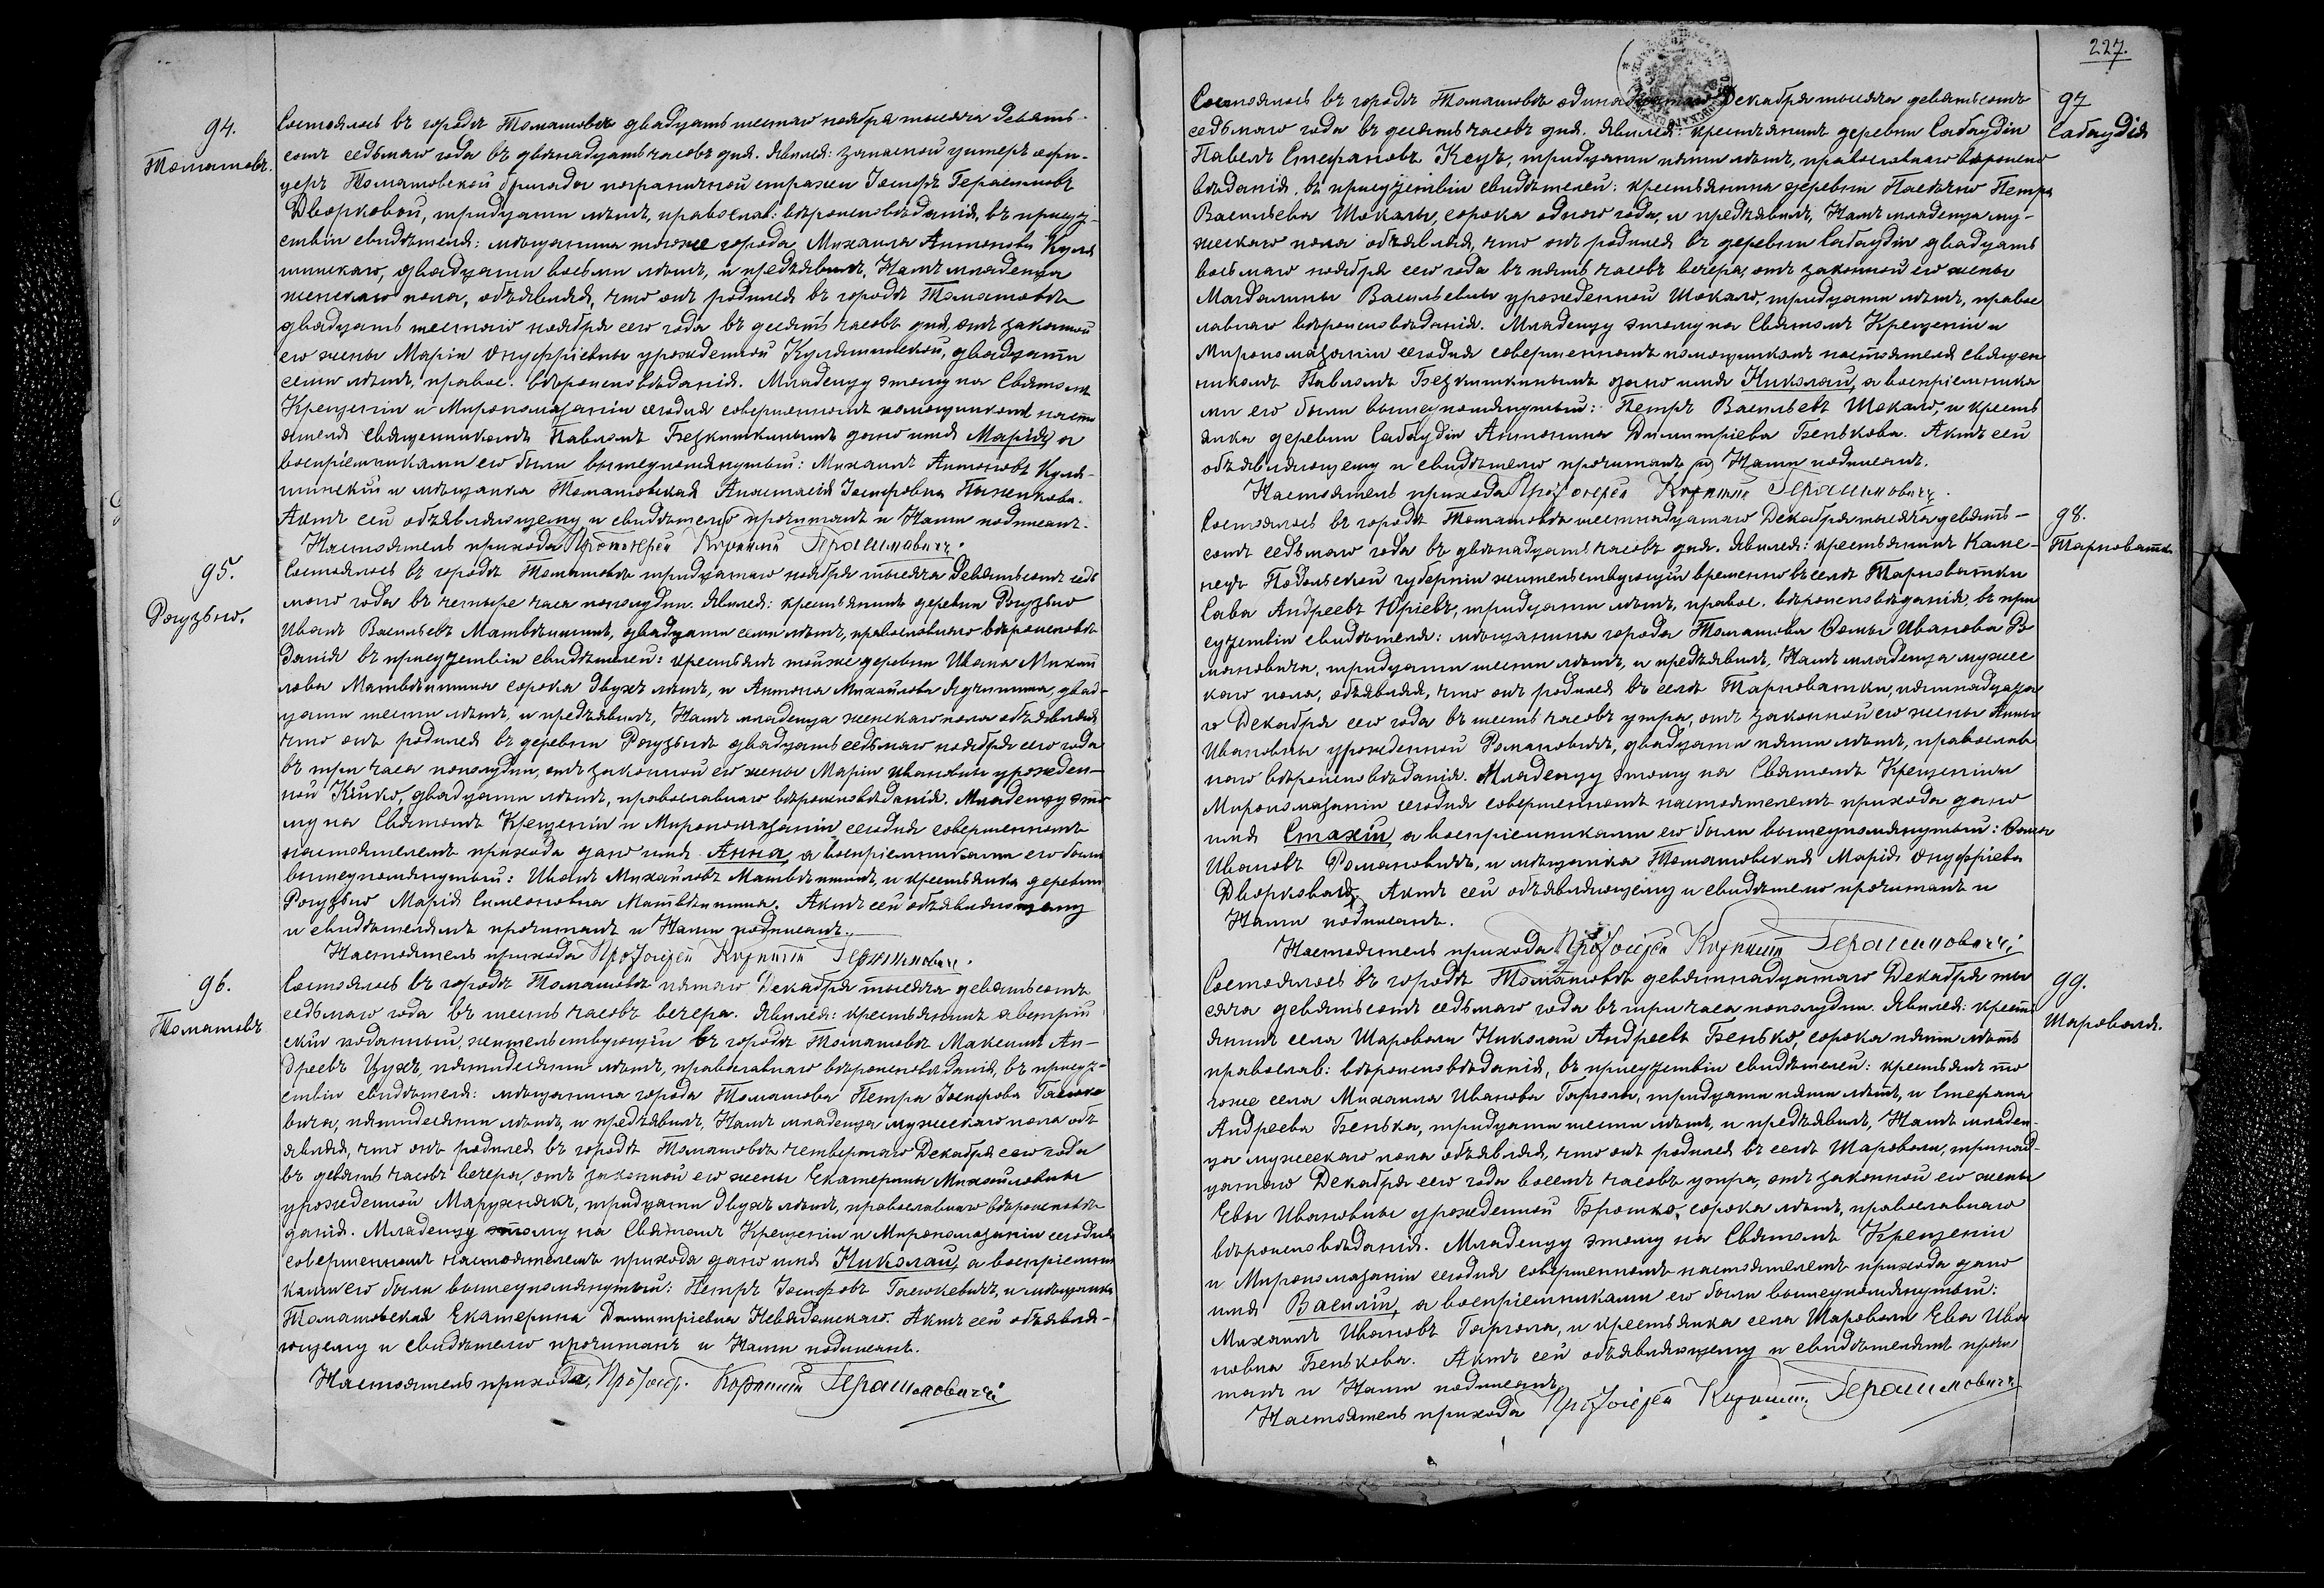 94.
Томашовъ.
Состоялось въ городѣ Томашовѣ двадцать шестаго ноября тысяча девять-
сотъ седьмаго года въ двѣнадцать часовъ дня. Явился: запасной унтеръ офи-
церъ Томашовской бригады пограничной стражи Іосифъ Герасимовъ
Дворковой, тридцати лѣтъ, православ: вѣроисповѣданія, въ присут-
ствіи свидѣтеля: мѣщанина тогоже города Михаила Антонова Куля-
шинскаго, двадцати восьми лѣтъ, и предъявилъ Намъ младенца
женскаго пола, объявляя, что онъ родился въ городѣ Томашовѣ
двадцать шестаго ноября сего года въ десять часовъ дня, отъ законной
его жены Маріи Онуфріевны урожденной Куляшинской, двадцати
семи лѣтъ, правос. вѣроисповѣданія. Младенцу этому на Святомъ
Крещеніи и Миропомазаніи сегодня совершенномъ помощникомъ насто
ятеля священникомъ Павломъ Безкишкинымъ дано имя Марія, а
воспріемниками его были вышеупомянутый: Михаилъ Антоновъ Куля-
шинскій и мѣщанка Томашовская Анастасія Іосифовна
Актъ сей объявляющему и свидѣтелю прочитанъ и Нами подписанъ.
Настоятель прихода Протоіерей Корнилій Герасимовичъ.
95.
Рогузьно.
Состоялось въ городѣ Томашовѣ тридцатаго ноября тысяча девятьсотъ седь
маго года въ четыре часа пополудни. Явился: крестьянинъ деревни Рогузьно
Иванъ Васильевъ Матвѣишинъ, двадцати семи лѣтъ, православнаго вѣроисповѣ
данія въ присутствіи свидѣтелей: крестьянъ тойже деревни Ивана Михаи
лова Матвѣишина сорока двухъ лѣтъ, и Антона Михайлова Ядчишина, двад-
цати шести лѣтъ, и предъявилъ Намъ младенца женскаго пола объявляя
что онъ родился въ деревни Рогузьнѣ двадцать седьмаго ноября сего года
въ три часа пополудни, отъ законной его жены Маріи Ивановны урожден-
ной Кицко, двадцати лѣтъ, православнаго вѣроисповѣданія. Младенцу это
му на Святомъ Крещеніи и Миропомазаніи сегодня совершенномъ
настоятелемъ прихода дано имя Анна, а воспріемниками его были
вышеупомянутый: Иванъ Михайловъ Матвѣишинъ, и крестьянка деревни
Рогузьно Марія Симеоновна Матвѣишина. Актъ сей объявляющему
и свидѣтелямъ прочитанъ и Нами подписанъ.
Настоятель прихода Протоіерей Корнилій Герасимовичъ.
96.
Томашовъ
Состоялось въ городѣ Томашовѣ пятаго Декабря тысяча девятьсотъ
седьмаго года въ шесть часовъ вечера. Явился: крестьянинъ австрій
скій поданный, жительствующій въ городѣ Томашовѣ Максимъ Ан-
дреевъ Цухъ, пятидесяти лѣтъ, православнаго вѣроисповѣданія, въ присут-
ствіи свидѣтеля: мѣщанина города Томашова Петра Іосифова Гаське
вича, пятидесяти лѣтъ, и предъявилъ Намъ младенца мужескаго пола объ
являя, что онъ родился въ городѣ Томашовѣ четвертаго Декабря сего года
въ девять часовъ вечера, отъ законной его жены Екатерины Михайловны
урожденной Маружнякъ, тридцати двухъ лѣтъ, православнаго вѣроисповѣ
данія. Младенцу этому на Святомъ Крещеніи и Миропомазаніи сегодня
совершенномъ настоятелемъ прихода дано имя Николай, а воспріемни
ками его были вышеупомянутый: Петръ Іосифовъ Гаськевичъ, и мѣщанка
Томашовская Екатерина Димитріевна Невядомскаго. Актъ сей объявля-
ющему и свидѣтелю прочитанъ и Нами подписанъ.
Настоятель прихода, Протоіер. Корнилій Герасимовичъ
227.
97
Сабаудія
Состоялось въ городѣ Томашовѣ одинадцатаго Декабря тысяча девятьсотъ
седьмаго года въ десять часовъ дня. Явился: крестьянинъ деревни Сабаудіи
Павелъ Стефановъ Куцъ, тридцати пяти лѣтъ, православнаго вѣроиспо
вѣданія, въ присутствіи свидѣтелей: крестьянина деревни Пасѣчно Петра
Васильева Шокалы, сорока одного года, и предъявилъ, Намъ младенца му-
жескаго пола объявляя, что онъ родился въ деревни Сабаудіи двадцать
восьмаго ноября сего года въ пять часовъ вечера, отъ законной его жены
Магдалины Васильевны урожденной Шокало, тридцати лѣтъ, правос
лавнаго вѣроисповѣданія. Младенцу этому на Святомъ Крещеніи и
Миропомазаніи сегодня совершенномъ помощникомъ настоятеля священ
никомъ Павломъ Безкишкинымъ дано имя Николай, а воспріемника
ми его были вышеупомянутый: Петръ Васильевъ Шокало, и кресть
янка деревни Сабаудіи Антонина Димитріева Бенькова. Актъ сей
объявляющему и свидѣтелю прочитанъ и Нами подписанъ.
Настоятель прихода Протоіерей Корнилій Герасимовичъ.
98.
Тарноватка
Состоялось въ городѣ Томашовѣ шестнадцатаго Декабря тысяча девять-
сотъ седьмаго года въ двѣнадцать часовъ дня. Явился: крестьянинъ Каме-
нецъ Подольской губерніи жительствующій временно въ селѣ Тарноватки
Сава Андреевъ Юріевъ, тридцати лѣтъ, правос. вѣроисповѣданія, въ при
сутствіи свидѣтеля: мѣщанина города Томашова Фомы Иванова Ро
мановича, тридцати шести лѣтъ, и предъявилъ, Намъ младенца мужес
каго пола, объявляя, что онъ родился въ селѣ Тарноватки, пятнадцата
го Декабря сего года въ шесть часовъ утра, отъ законной его жены Анны
Ивановны урожденной Романовичъ, двадцати пяти лѣтъ, православ
наго вѣроисповѣданія. Младенцу этому на Святомъ Крещеніи и
Миропомазаніи сегодня совершенномъ настоятелемъ прихода дано
имя Стахій, а воспріемниками его были вышеупомянутый: Фома
Ивановъ Романовичъ, и мѣщанка Томашовская Марія Онуфріева
Дворковая. Актъ сей объявляющему и свидѣтелю прочитанъ и
Нами подписанъ.
Настоятель прихода Протоіерей Корнилій Герасимовичъ
99.
Шароволя.
Состоялось въ городѣ Томашовѣ девятнадцатаго Декабря ты
сяча девятьсотъ седьмаго года въ три часа пополудни. Явился: кресть
янинъ села Шароволи Николай Андреевъ Бенько, сорока пяти лѣтъ
православ: вѣроисповѣданія, въ присутствіи свидѣтелей: крестьянъ то
гоже села Михаила Иванова Гарголы, тридцати пяти лѣтъ, и Стефана
Андреева Бенька, тридцати шести лѣтъ, и предъявилъ, Намъ младен-
ца мужескаго пола объявляя, что онъ родился въ селѣ Шароволи, тринад-
цатаго Декабря сего года восемь часовъ утра, отъ законной его жены
Евы Ивановны урожденной Брошко, сорока лѣтъ, православнаго
вѣроисповѣданія. Младенцу этому на Святомъ Крещеніи
и Миропомазаніи сегодня совершенномъ настоятелемъ прихода дано
имя Василій, а воспріемниками его были вышеупомянутый:
Михаилъ Ивановъ Гаргола, и крестьянка села Шароволи Ева Ива
новна Бенькова. Актъ сей объявляющему и свидѣтелямъ прочи
танъ и Нами подписанъ.
Настоятель прихода Протоіерей Корнилій Герасимовичъ